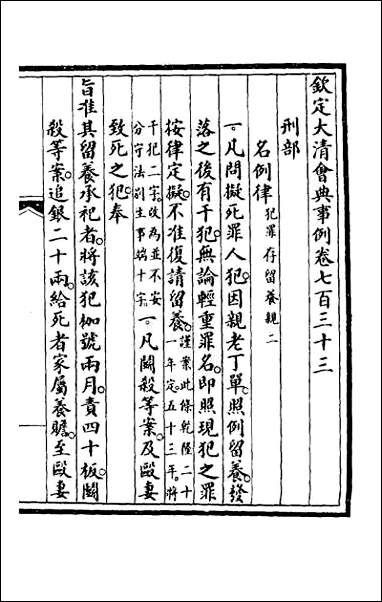 欽定大清會典事例卷七百三十三
刑部
名例律犯罪存留養親二
一凡問擬死罪人犯因親老丁單照例留養發
落之後有干犯無論輕重罪名即照現犯之罪
按律定擬不准復請留養謹案此條乾隆二十一年定五十三年將
干犯二字改為並不安分守法別生事端十字一凡鬭殺等案及毆妻
致死之犯奉
旨准其留養承祀者將該犯枷號兩月責四十板鬭
殺等案追銀二十兩給死者家屬養贍至毆妻